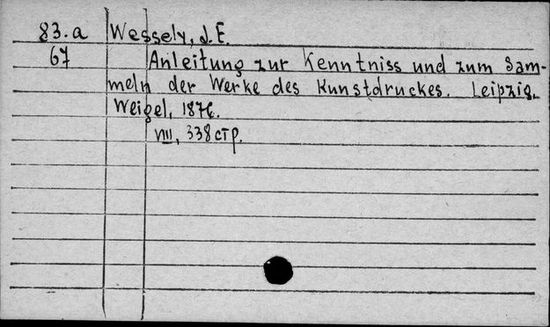 83.a Wessely, J.E.
67 Anleitung zur Kenntniss und zum Sam-
meln der Werke des Kunstdruckes. Leipzig,
Weigel, 1876.
VIII, 338 стр.